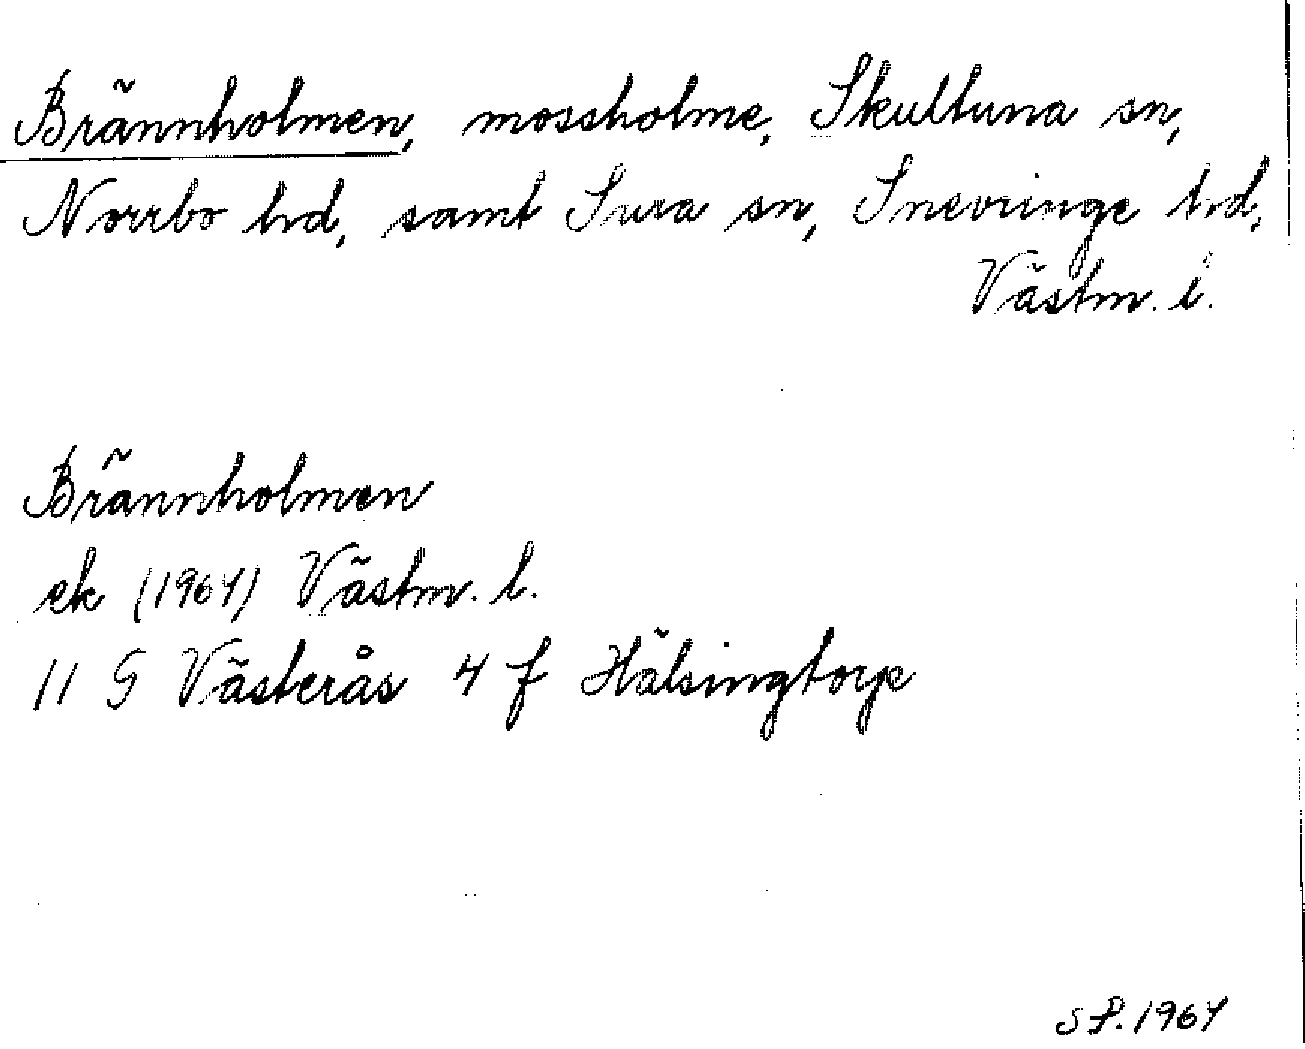 Brännholmen, mossholme, Skultuna sn,
Norrbo hd, samt Sura sn, Snevringe hd,
Västm. l.
Brännholmen
ek (1964) Västm. l.
11 G Västerås 4 f Hälsingtorp
SP. 1964